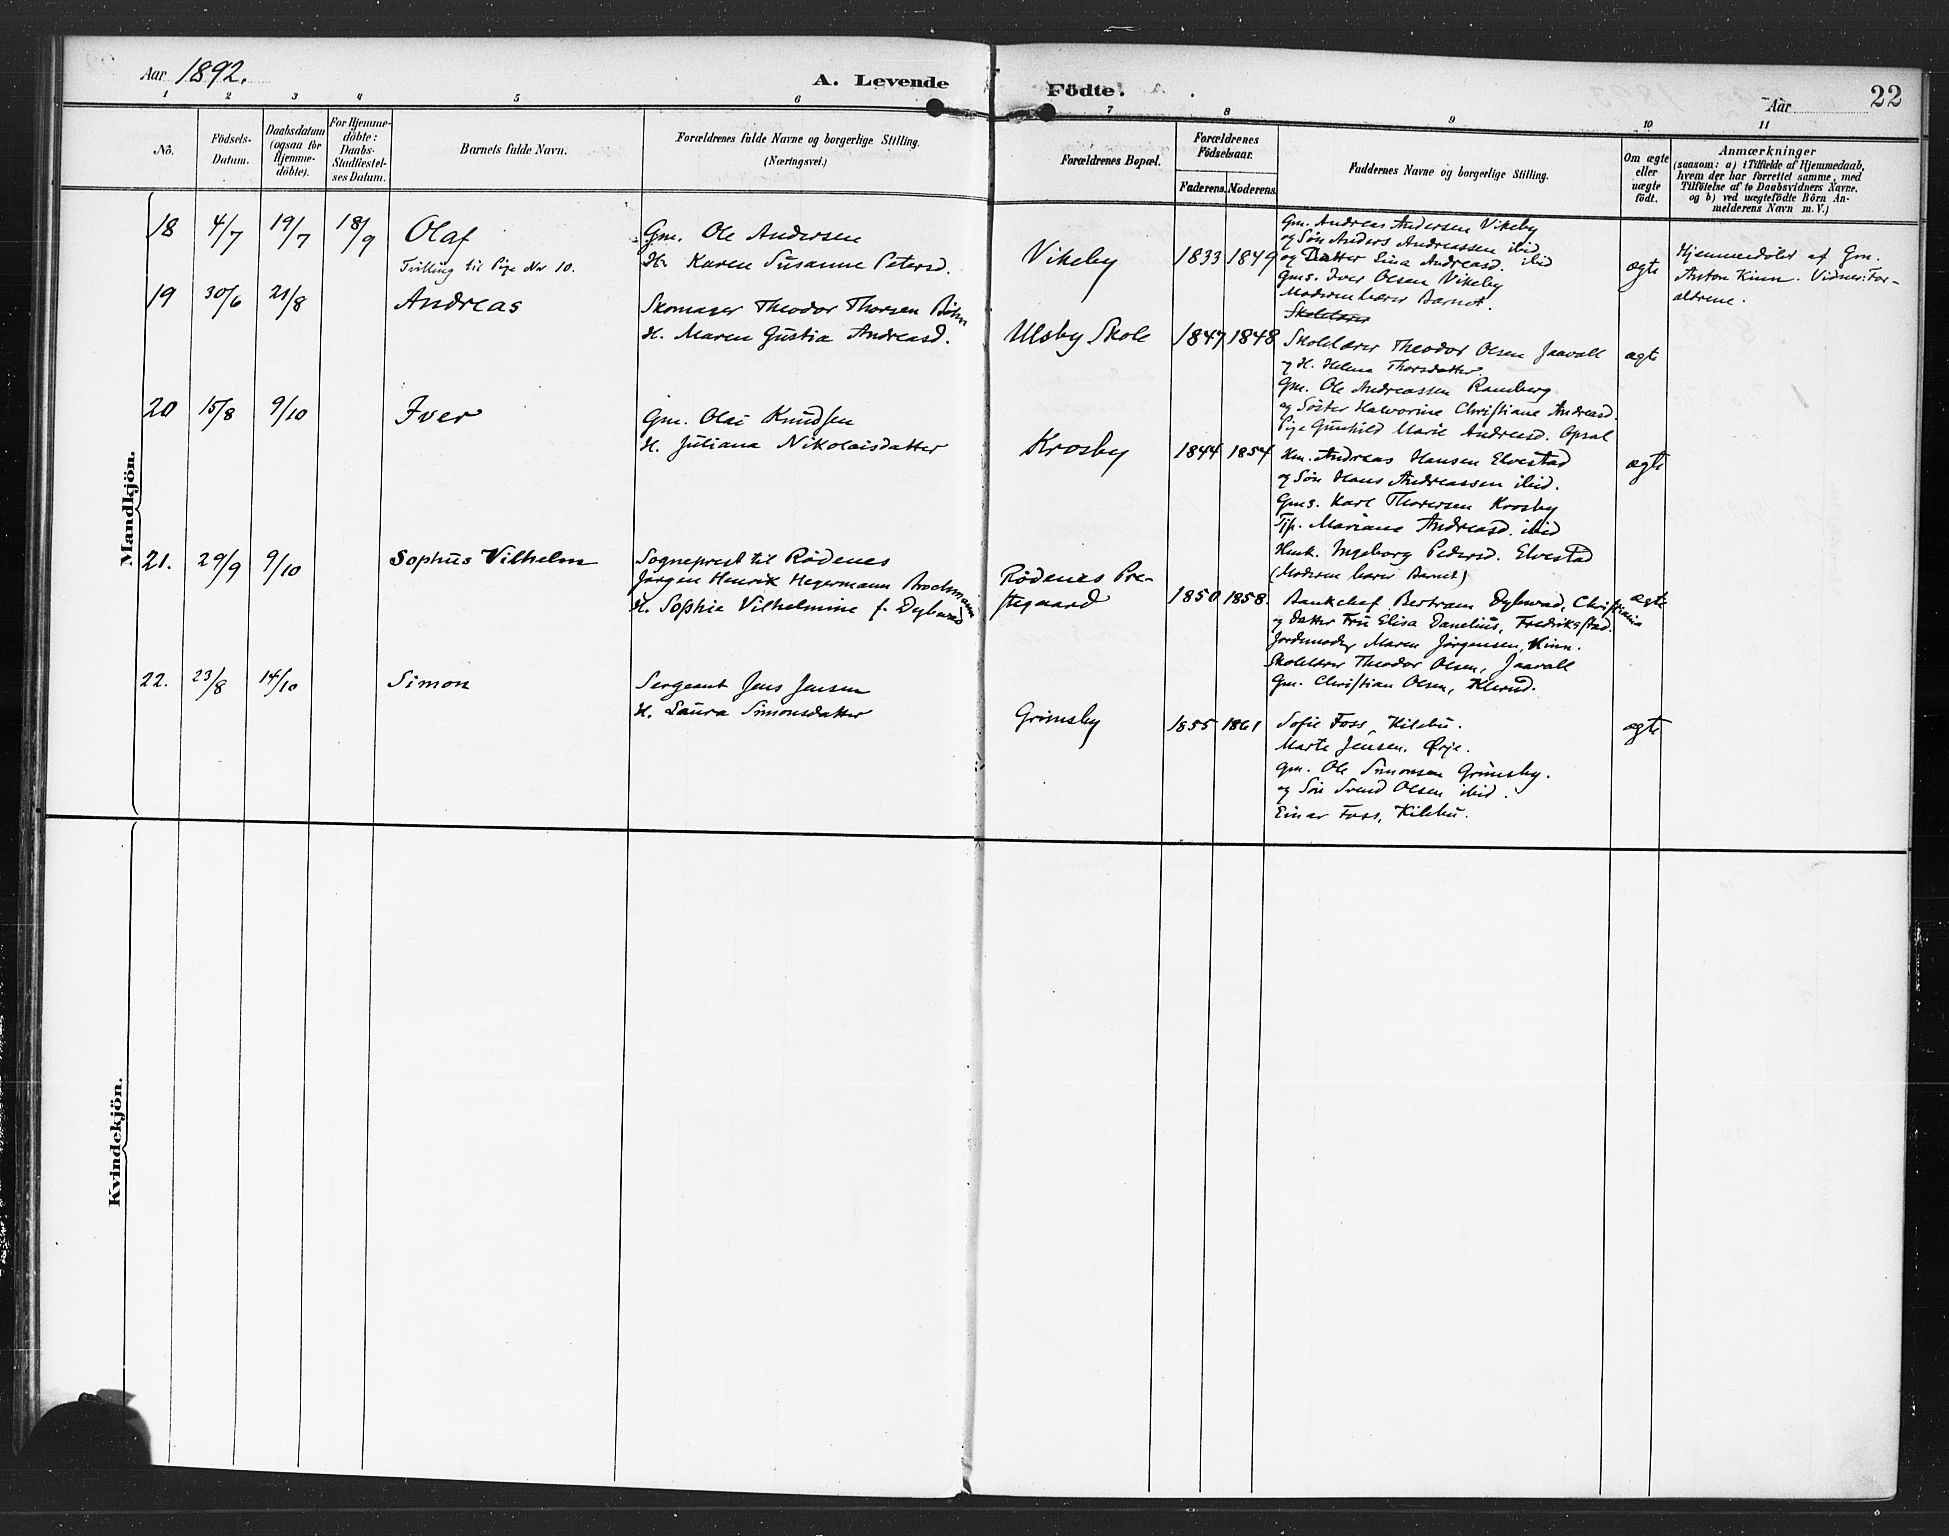 Aar 1892.
A. Levende Födte.
Aar
22
1 2 3 4 5 6 7 8 9 10 11
No.
Födsels-
Datum.
Daabsdatum
(ogsaa for
Hjemme-
döbte).
For Hjemme-
döbte:
Daabs-
Stadfæstel-
ses Datum.
Barnets fulde Navn.
Forældrenes fulde Navne og borgerlige Stilling.
(Næringsvei.)
Forældrenes Bopæl.
Forældrenes
Födselsaar.
Faderens. Moderens.
Faddernes Navne og borgerlige Stilling.
Om ægte
eller
uægte
födt.
Anmærkninger
(saasom: a) i Tilfælde af Hjemmedaab,
hvem der har forrettet samme, med
Tilföielse af to Daabsvidners Navne.
og b) ved uægtefödte Börn An-
melderens Navn m. V.)
Mandkjön.
18 4/7 19/7 18/9 Olaf
Tvilling til Pige No 10.
Gm. Ole Andersen
H. Karen Susanne Petersd.
Vikeby 1833 1849
Gm. Andreas Andersen Vikeby
og Søn Anders Andreassen ibid
og Datter Lina Andreasd. ibid
Gms. Iver Olsen Vikeby
Moderen bærer Barnet.
Skolelærer
ægte
Hjemmedøbt af Gm.
Anton Kinn. Vidner: For-
ældrene.
19 30/6 21/8 Andreas
Skomager Theodor Thorsen Böhn
H. Maren Gustia Andreasd.
Ulsby Skole 1847 1848
Skolelærer Theodor Olsen Jaavall
og H. Helena Thorsdatter
Gm. Ole Andreassen Ramberg
og Søster Halvorine Christiane Andreasd.
Pige Gunhild Marie Andreasd. Opsal
ægte
20 15/8 9/10 Iver
Gm. Olai Knudsen
H. Juliana Nikolaisdatter
Krosby 1844 1854
Hm. Andreas Hansen Elvestad
og Søn Hans Andreassen ibid.
Gms. Karl Thoresen Krosby
Tjp. Mariane Andreasd. ibid
Husk. Ingeborg Pedersd. Elvestad
(Moderen bærer Barnet)
ægte
21. 29/9 9/10 Sophus Vilhelm
Sogneprest til Rødenes
Jørgen Henrik Hegermann Brochmann
H. Sophie Vilhelmine f. Dybwad
Rødenes Pre-
stegaard
1850 1858.
Bankchef Bertram Dybwad, Christiania
og Datter Fru Elisa Danelius, Fredrikstad.
Jordemoder Maren Jørgensen, Kinn.
Skolelærer Theodor Olsen, Jaavall
Gm. Christian Olsen, Klerud.
ægte
22. 23/8 14/10 Simon
Sergeant Jens Jensen
H. Laura Simonsdatter
Grimsby 1855 1861
Sofie Foss, Kilebu.
Marte Jensen, Ørje.
Gm. Ole Simonsen Grimsby.
og Søn Svend Olsen ibid.
Einar Foss, Kilebu.
ægte
Kvindekjön.